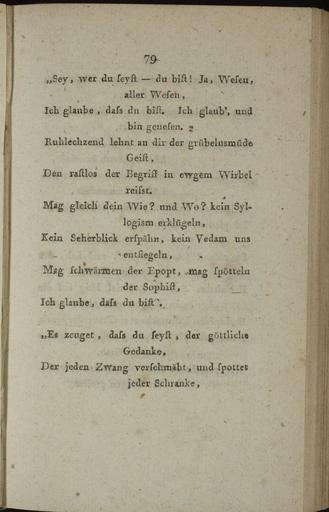 79
„Sey, wer du ſeyſt — du biſt! Ja, Weſen,
aller Weſen,
Ich glaube, daſs du biſt. Ich glaub', und
bin geneſen.
Ruhlechzend lehnt an dir der grübelnsmüde
Geiſt,
Den raſtlos der Begriff in ewgem Wirbel
reiſst.
Mag gleich dein Wie? und Wo? kein Syl-
logism erklügeln,
Kein Seherblick erſpähn, kein Vedam uns
entſiegeln,
Mag ſchwärmen der Epopt, mag ſpötteln
der Sophiſt,
Ich glaube, daſs du biſt“.
„Es zeuget, daſs du ſeyſt, der göttliche
Gedanke,
Der jeden Zwang verſchmäht, und ſpottet
jeder Schranke,